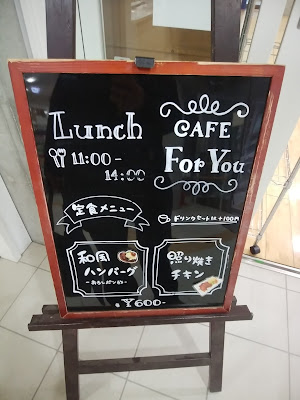 Lunch
11:00-
14:00
CAFE
For You
定食メニュー
ドリンクセットは+100円
和風
ハンバーグ
-おろしポン酢-
照り焼き
チキン
¥600-